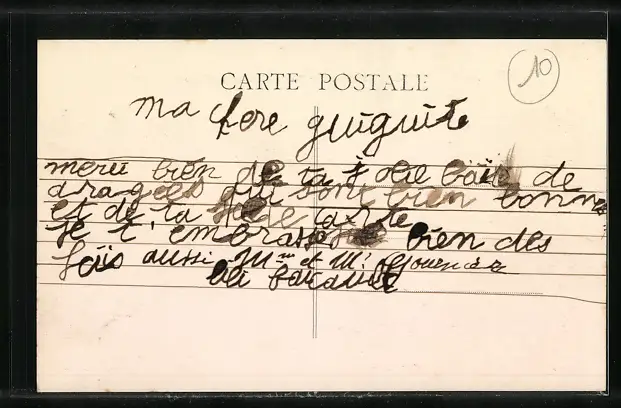 CARTE POSTALE
10
ma chere guiguite
merci bien de ta jolie boite de
dragees qui sont bien bonnes
et de ta jolie carte
je t'embrasse bien des
fois aussi Mme et Mr